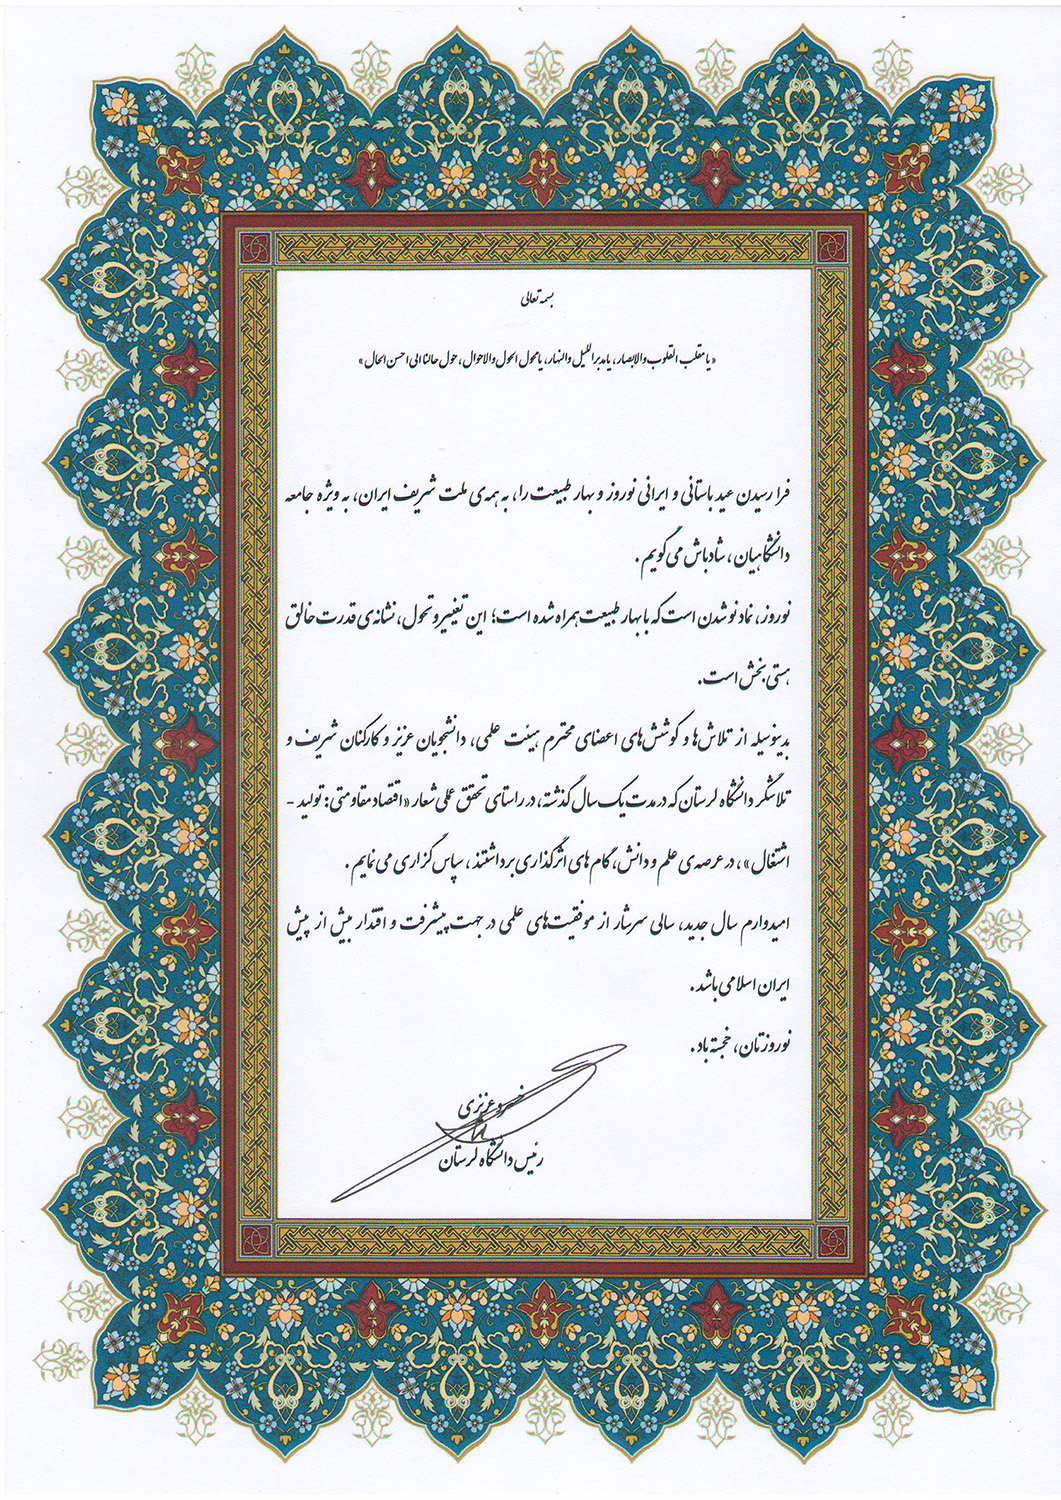 بسمه تعالی
«یا مقلب القلوب والابصار، یا مدبر اللیل والنهار، یا محول الحول والاحوال، حول حالنا الی احسن الحال»
فرا رسیدن عید باستانی و ایرانی نوروز و بهار طبیعت را، به همه‌ی ملت شریف ایران، به ویژه جامعه
دانشگاهیان، شادباش می گویم.
نوروز، نماد نو شدن است که با بهار طبیعت همراه شده است؛ این تغییر و تحول، نشانه‌ی قدرت خالق
هستی بخش است.
بدینوسیله از تلاش‌ها و کوشش‌های اعضای محترم هیئت علمی، دانشجویان عزیز و کارکنان شریف و
تلاشگر دانشگاه لرستان که در مدت یک سال گذشته، در راستای تحقق عملی شعار «اقتصاد مقاومتی: تولید -
اشتغال»، در عرصه‌ی علم و دانش، گام های اثرگذاری برداشتند، سپاس گزاری می نمایم.
امیدوارم سال جدید، سالی سرشار از موفقیت‌های علمی در جهت پیشرفت و اقتدار بیش از پیش
ایران اسلامی باشد.
نوروزتان، خجسته باد.
خسرو عزیزی
رئیس دانشگاه لرستان